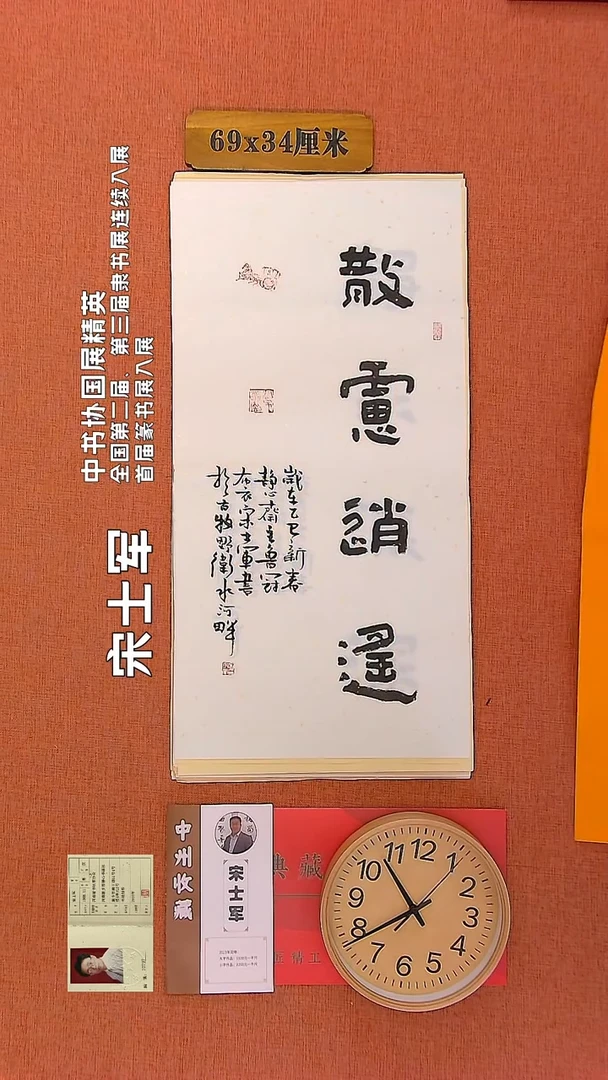 69x34厘米
散慮逍遙
歲在乙巳新春
静心齋主魯冠
布衣宋士軍書
於古牧野衛水河畔
中书协国展精英
全国第二届、第三届隶书展连续入展
首届篆书展入展
宋士军
宋士军
典藏
精工
12
1
2
3
4
5
6
7
8
9
10
11